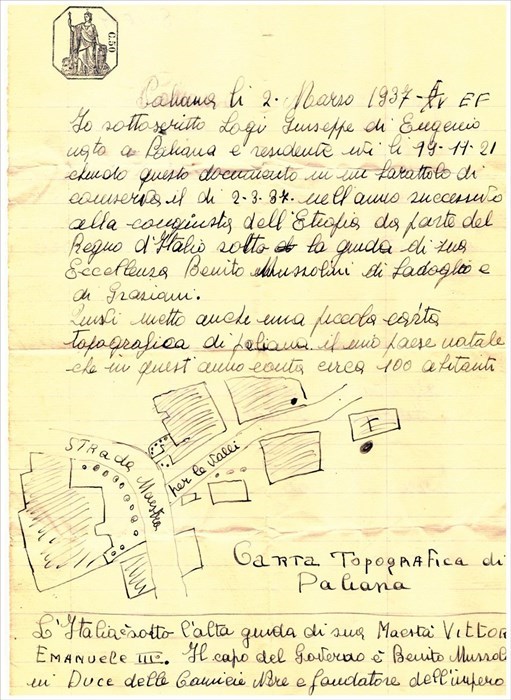 C.50
Paliana li 2. Marzo 1937-XV EF
Io sottoscritto Logi Giuseppe di Eugenio
nato a Paliana e residente ivi li 19-11-21
chiudo questo documento in un barattolo di
conserva il dì 2-3-37. nell'anno successivo
alla conquista dell'Etiopia da parte del
Regno d'Italia sotto la guida di sua
Eccellenza Benito Mussolini di Badoglio e
di Graziani.
Quivi metto anche una piccola carta
topografica di paliana il mio paese natale
che in quest'anno conta circa 100 abitanti
STRada Maestra
per le Valli
CARTA TOPOGRAFICA di
PALIANA
L'Italia è sotto l'alta guida di sua Maestà VITTOR
EMANUELE III°. Il capo del Governo è Benito Mussol
ini Duce delle Camicie Nere e fondatore dell'impero